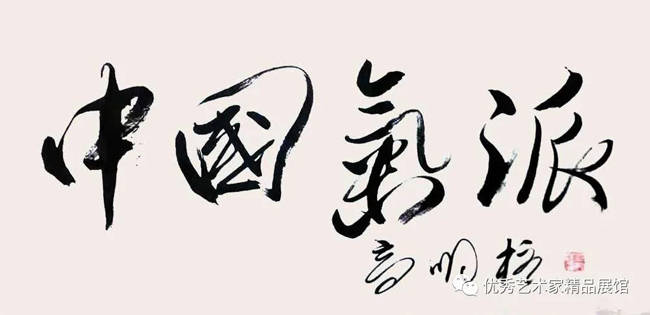 中國氣派
高明
优秀艺术家精品展馆